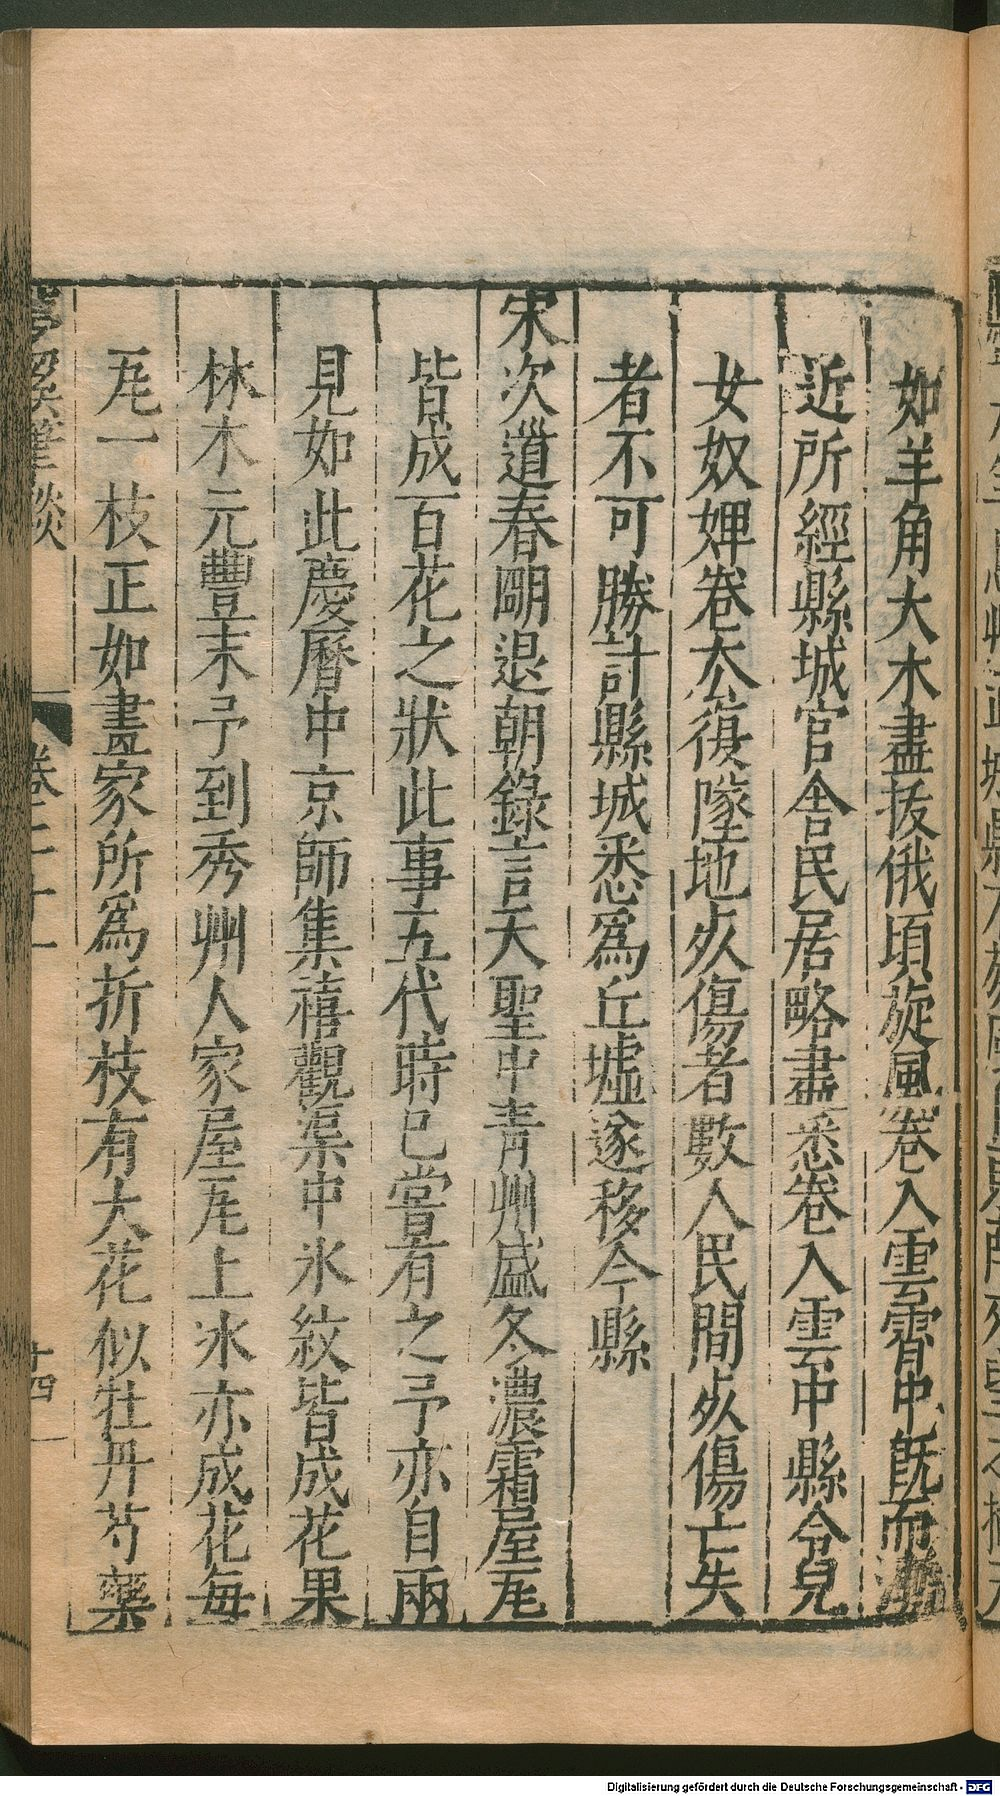 如羊角大木盡拔俄頃旋風卷入雲霄中既而漸
近所經縣城官舍民居略盡悉卷入雲中縣令兒
女奴婢卷去復墜地死傷者數人民間死傷亡失
者不可勝計縣城悉爲丘墟遂移今縣
宋次道春明退朝錄言天聖中青州盛冬濃霜屋瓦
皆成百花之狀此事五代時已嘗有之予亦自兩
見如此慶曆中京師集禧觀渠中氷紋皆成花果
林木元豐末予到秀州人家屋瓦上氷亦成花每
瓦一枝正如畫家所爲折枝有大花似牡丹芍藥
夢溪筆談 卷二十一 十四
Digitalisierung gefördert durch die Deutsche Forschungsgemeinschaft - DFG